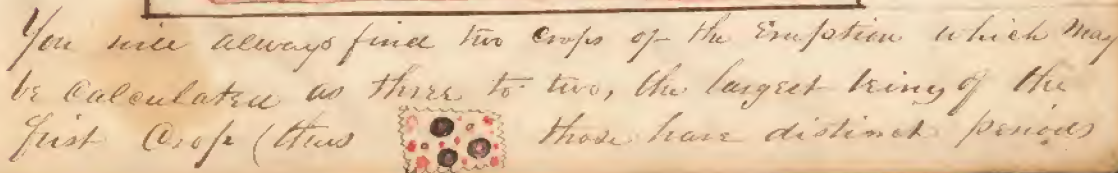 You will always find two Crops of the Eruption which may
be Calculated as three to two, the largest being of the
first Crop (thus those have distinct periods